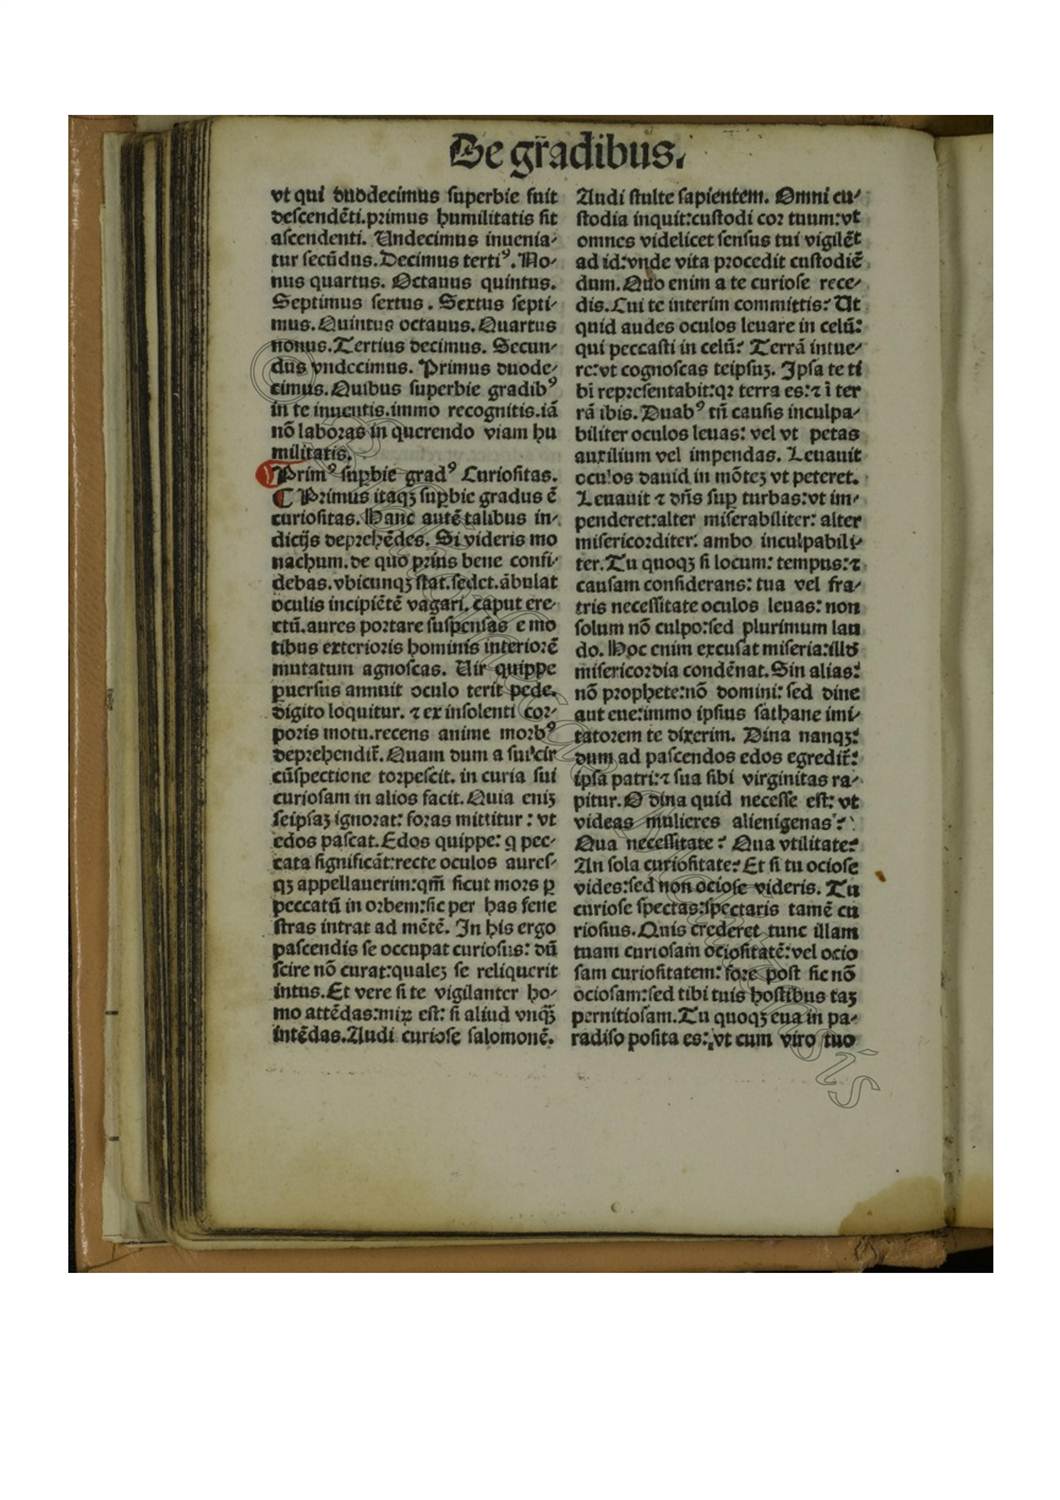 De gradibus.
vt qui duodecimus superbie fuit
descendēti.primus humilitatis sit
ascendenti. Undecimus inuenia⸗
tur secūdus.Decimus tertiꝰ.No⸗
nus quartus. Octauus quintus.
Septimus sextus. Sextus septi⸗
mus.Quintus octauus.Quartus
nonus.Tertius decimus. Secun⸗
dus vndecimus. Primus duode⸗
cimus.Quibus superbie gradibꝰ
in te inuentis.immo recognitis.iā
nō laboras in querendo viam hu
militatis.
Primꝰ suꝑbie gradꝰ Curiositas.
¶ Primus itaqꝫ suꝑbie gradus ē
curiositas. Hanc autē talibus in⸗
dicijs deprehēdes. Si videris mo
nachum.de quo prius bene confi⸗
debas.vbicunqꝫ stat.sedet.ābulat
oculis incipiētē vagari. caput ere⸗
ctū.aures portare suspensas e mo
tibus exterioris hominis interiorē
mutatum agnoscas. Uir quippe
puersus annuit oculo terit pede.
digito loquitur. ⁊ ex insolenti cor⸗
poris motu.recens anime morbꝰ
deprehendit̄.Quam dum a sui cir
cūspectione torpescit. in curia sui
curiosam in alios facit.Quia eniꝫ
seipsaꝫ ignorat: foras mittitur: vt
edos pascat.Edos quippe: q pec⸗
cata significāt:recte oculos aures⸗
qꝫ appellauerim:qm̄ sicut mors ꝑ
peccatū in orbem:sic per has fene
stras intrat ad mētē. In his ergo
pascendis se occupat curiosus: dū
scire nō curat:qualeꝫ se reliquerit
intus.Et vere si te vigilanter ho⸗
mo attēdas:mirꝝ est: si aliud vnqꝫ̄
intēdas.Audi curiose salomonē.
Audi stulte sapientem. Omni cu⸗
stodia inquit:custodi cor tuum:vt
omnes videlicet sensus tui vigilēt
ad id:vnde vita procedit custodiē
dum.Quo enim a te curiose rece⸗
dis.Cui te interim committis? Ut
quid audes oculos leuare in celū?
qui peccasti in celū? Terrā intue⸗
re:vt cognoscas teipsuꝫ. Ipsa te ti
bi representabit:qꝛ terra es:⁊ ī ter
rā ibis.Duabꝰ tn̄ causis inculpa⸗
biliter oculos leuas: vel vt petas
auxilium vel impendas. Leuauit
oculos dauid in mōteꝫ vt peteret.
Leuauit ⁊ dn̄s suꝑ turbas:vt im⸗
penderet:alter miserabiliter: alter
misericorditer: ambo inculpabili⸗
ter.Tu quoqꝫ si locum: tempus:⁊
causam considerans: tua vel fra⸗
tris necessitate oculos leuas: non
solum nō culpo:sed plurimum lau
do. Hoc enim excusat miseria:illd̄
misericordia condēnat.Sin alias:
nō prophete:nō domini: sed dine
aut eue:immo ipsius sathane imi⸗
tatorem te dixerim. Dina nanqꝫ:
dum ad pascendos edos egredit̄:
ipsa patri:⁊ sua sibi virginitas ra⸗
pitur.O dina quid necesse est: vt
videas mulieres alienigenas?
Qua necessitate? Qua vtilitate?
An sola curiositate? Et si tu ociose
vides:sed non ociose videris. Tu
curiose spectas:spectaris tamē cu
riosius.Quis crederet tunc illam
tuam curiosam ociositatē:vel ocio
sam curiositatem: fore post sic nō
ociosam:sed tibi tuis hostibus taꝫ
pernitiosam.Tu quoqꝫ eua in pa⸗
radiso posita es:vt cum viro tuo